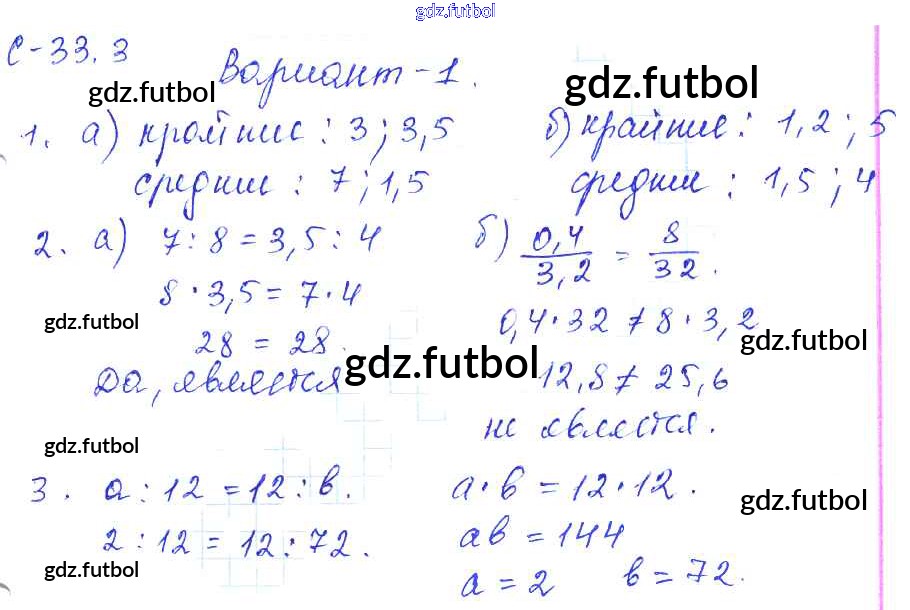 gdz.futbol
С-33.3
Вариант-1.
gdz.futbol
gdz.futbol
1. а) крайние : 3 ; 3,5
б) крайние : 1,2 ; 5
средние : 7 ; 1,5
средние : 1,5 ; 4
2. а) 7 : 8 = 3,5 : 4
б) 0,4/3,2 = 8/32.
8 · 3,5 = 7 · 4
0,4 · 32 ≠ 8 · 3,2
gdz.futbol
gdz.futbol
28 = 28.
gdz.futbol
Да, является
12,8 ≠ 25,6
не является.
gdz.futbol
3. a : 12 = 12 : b.
a · b = 12 · 12.
gdz.futbol
2 : 12 = 12 : 72.
ab = 144
gdz.futbol
a = 2 b = 72.